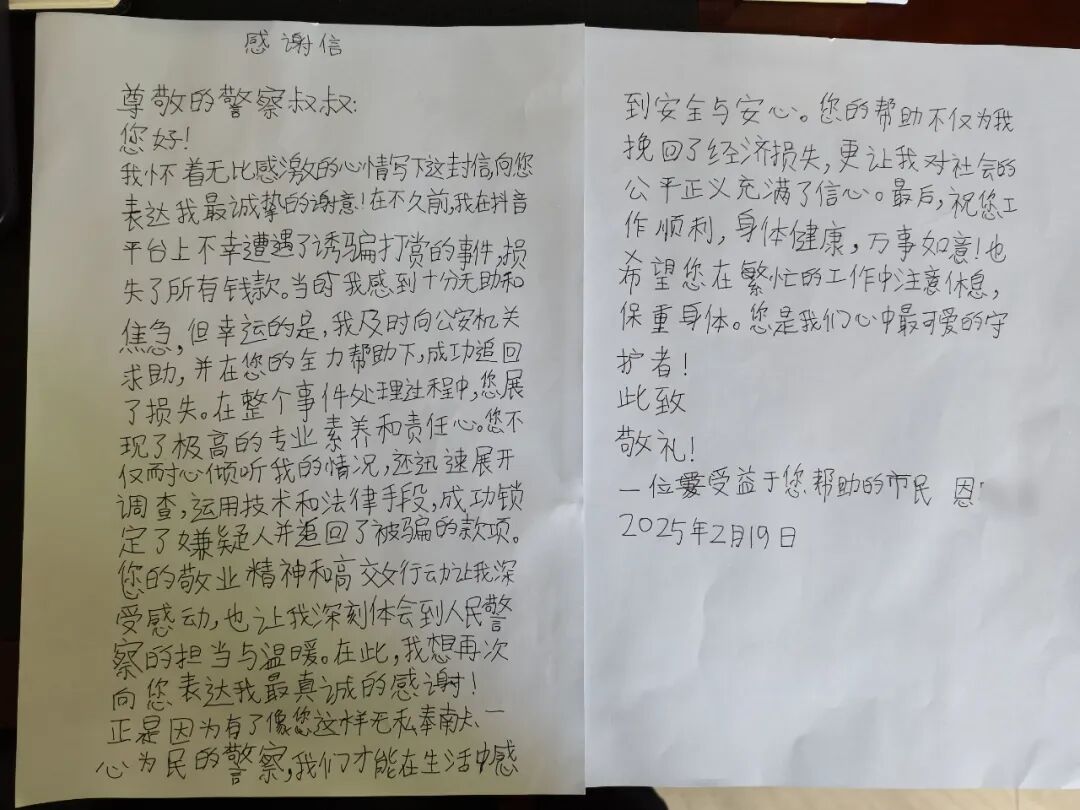 感谢信
尊敬的警察叔叔:
您好!
我怀着无比感激的心情写下这封信,向您
表达我最诚挚的谢意!在不久前,我在抖音
平台上不幸遭遇了诱骗打赏的事件,损
失了所有钱款。当时我感到十分无助和
焦急,但幸运的是,我及时向公安机关
求助,并在您的全力帮助下,成功追回
了损失。在整个事件处理过程中,您展
现了极高的专业素养和责任心。您不
仅耐心倾听我的情况,还迅速展开
调查,运用技术和法律手段,成功锁
定了嫌疑人并追回了被骗的款项。
您的敬业精神和高效行动让我深
受感动,也让我深刻体会到人民警
察的担当与温暖。在此,我想再次
向您表达我最真诚的感谢!
正是因为有了像您这样无私奉献、一
心为民的警察,我们才能在生活中感
到安全与安心。您的帮助不仅为我
挽回了经济损失,更让我对社会的
公平正义充满了信心。最后,祝您工
作顺利,身体健康,万事如意!也
希望您在繁忙的工作中注意休息,
保重身体。您是我们心中最可爱的守
护者!
此致
敬礼!
一位受益于您帮助的市民 恩
2025年2月19日